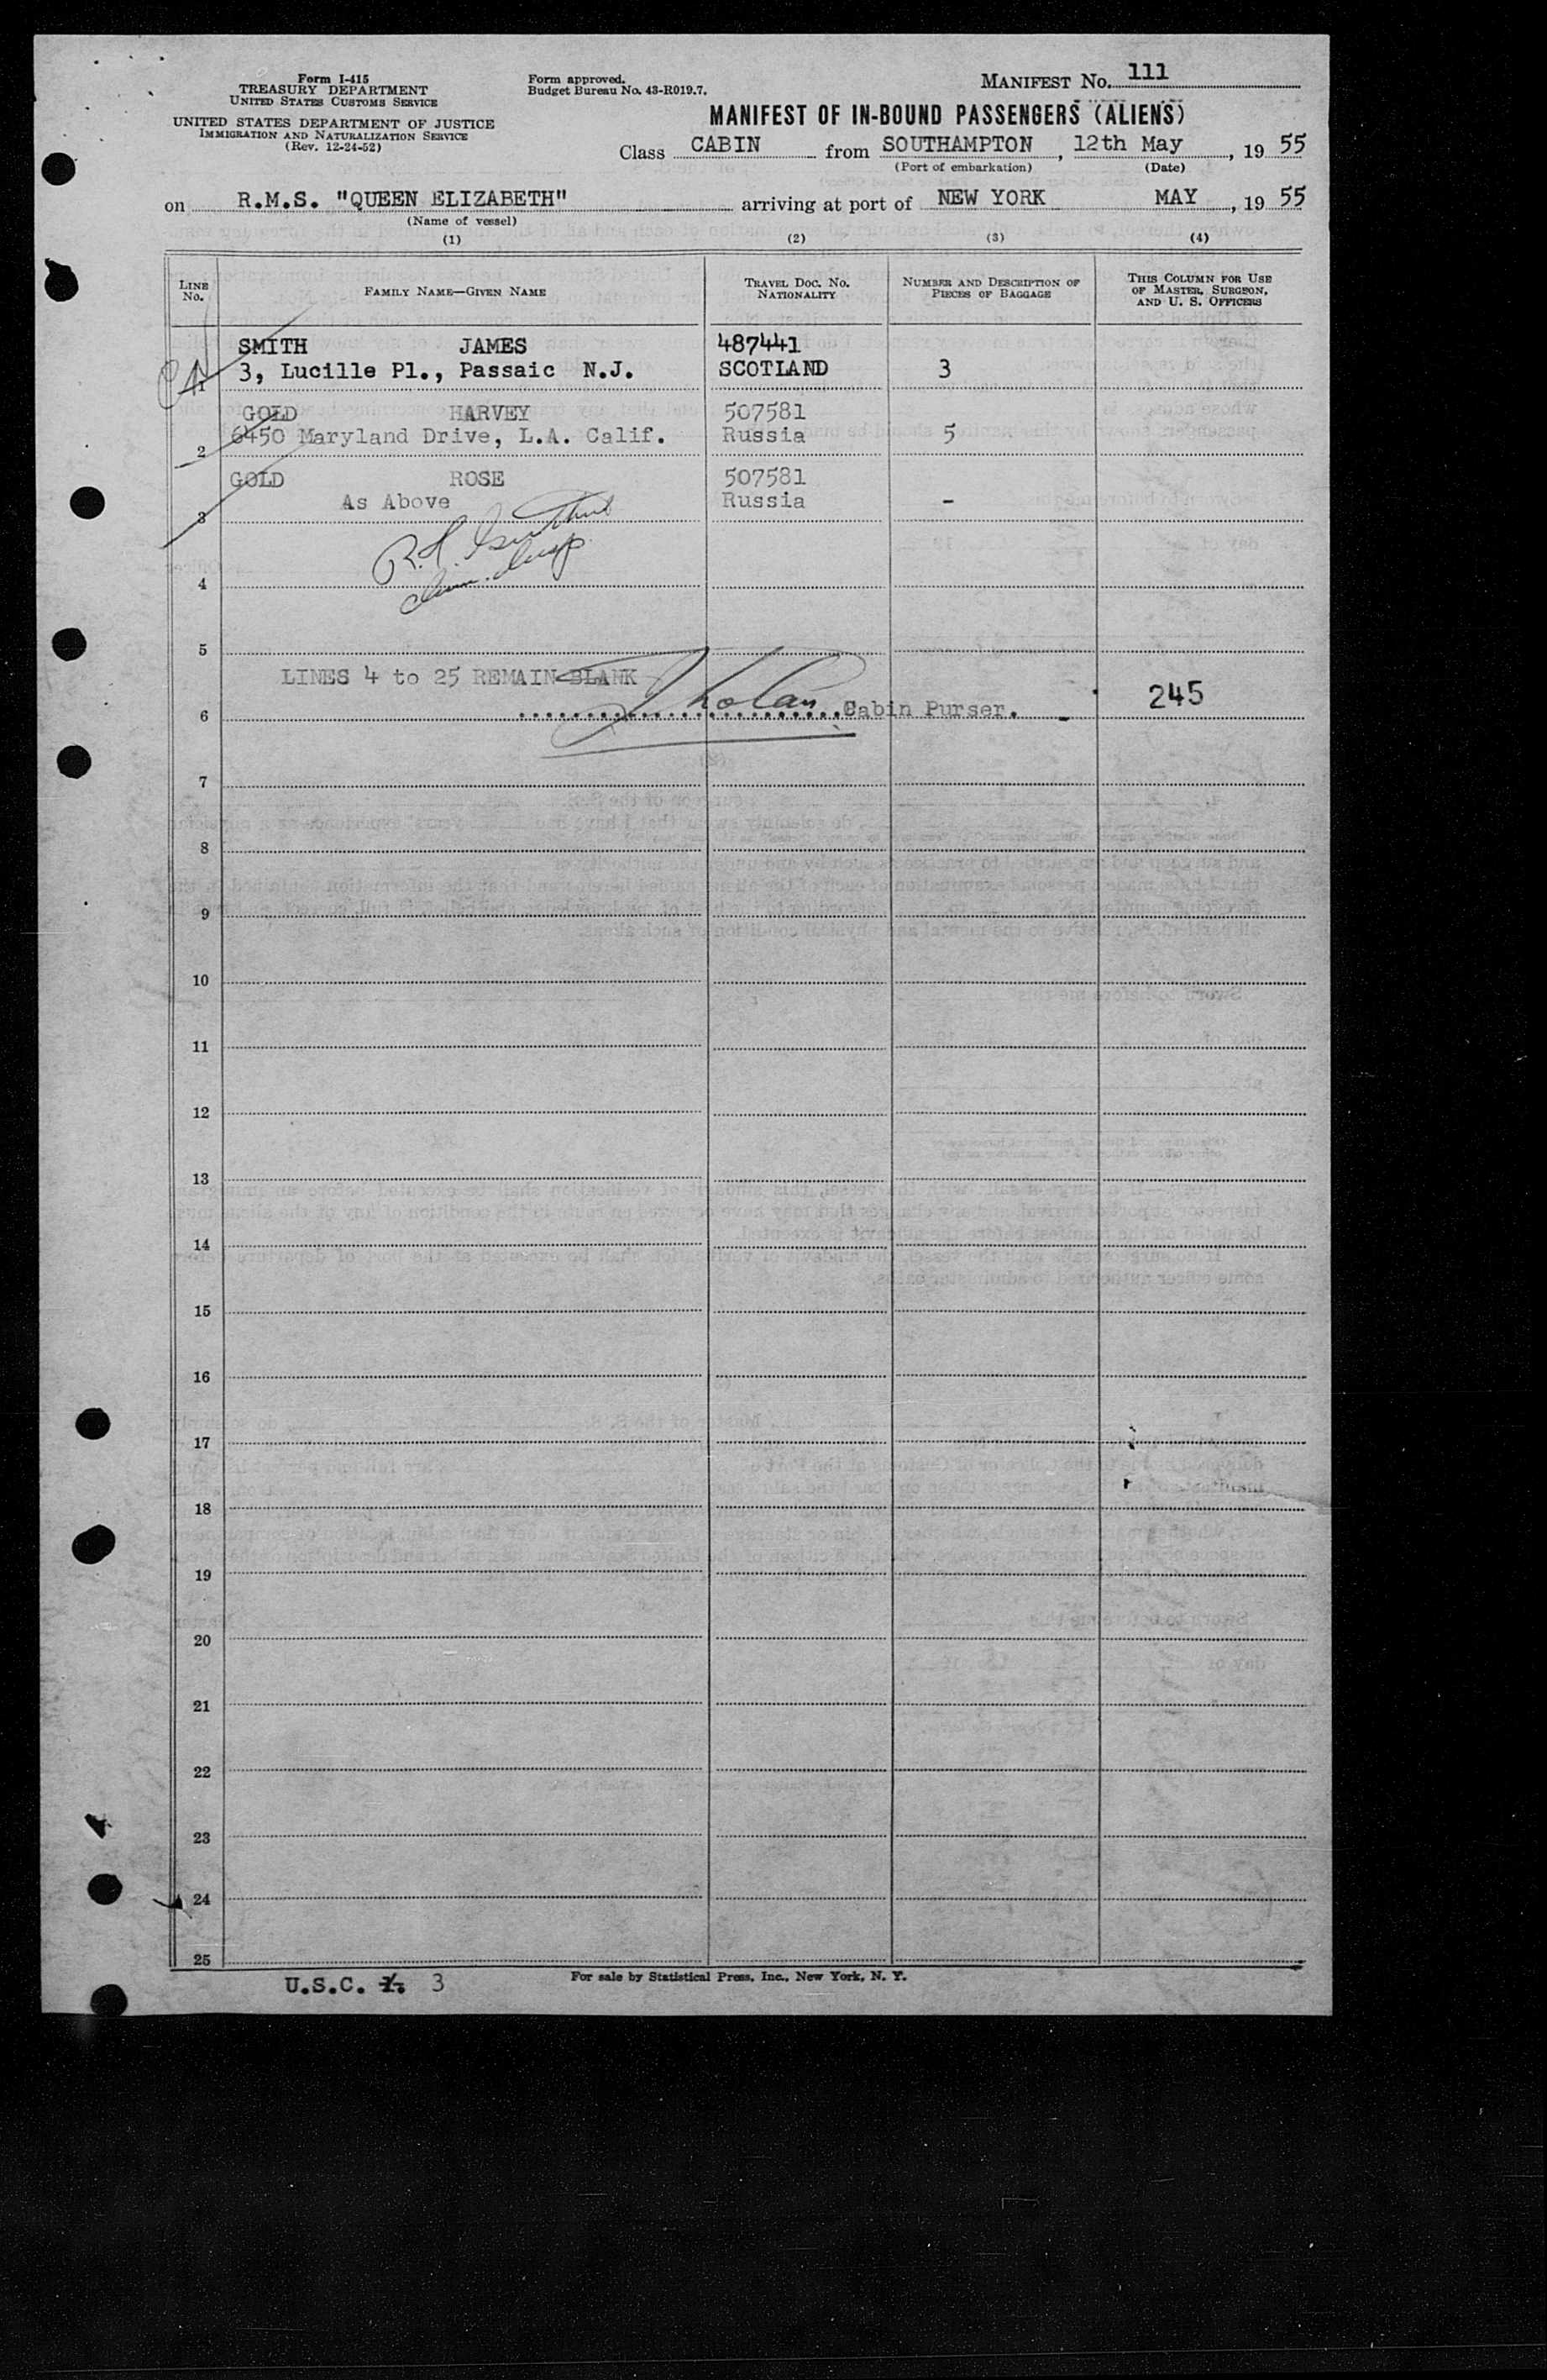 Form I-415
TREASURY DEPARTMENT
UNITED STATES CUSTOMS SERVICE
UNITED STATES DEPARTMENT OF JUSTICE
IMMIGRATION AND NATURALIZATION SERVICE
(Rev. 12-24-52)
Form approved.
Budget Bureau No. 43-R019.7.
MANIFEST NO. 111
MANIFEST OF IN-BOUND PASSENGERS (ALIENS)
Class CABIN from SOUTHAMPTON, 12th May, 19 55
(Port of embarkation) (Date)
on R.M.S. "QUEEN ELIZABETH" arriving at port of NEW YORK MAY, 19 55
(Name of vessel)
(1) (2) (3) (4)
LINE NO. FAMILY NAME—GIVEN NAME TRAVEL DOC. NO. NATIONALITY NUMBER AND DESCRIPTION OF PIECES OF BAGGAGE THIS COLUMN FOR USE OF MASTER, SURGEON, AND U. S. OFFICERS
SMITH JAMES 487441
1 3, Lucille Pl., Passaic N.J. SCOTLAND 3
GOLD HARVEY 507581
2 6450 Maryland Drive, L.A. Calif. Russia 5
GOLD ROSE 507581
3 As Above Russia -
4
5
LINES 4 to 25 REMAIN BLANK
6 Cabin Purser. - 245
7
8
9
10
11
12
13
14
15
16
17
18
19
20
21
22
23
24
25
U.S.C. 1. 3
For sale by Statistical Press, Inc., New York, N. Y.